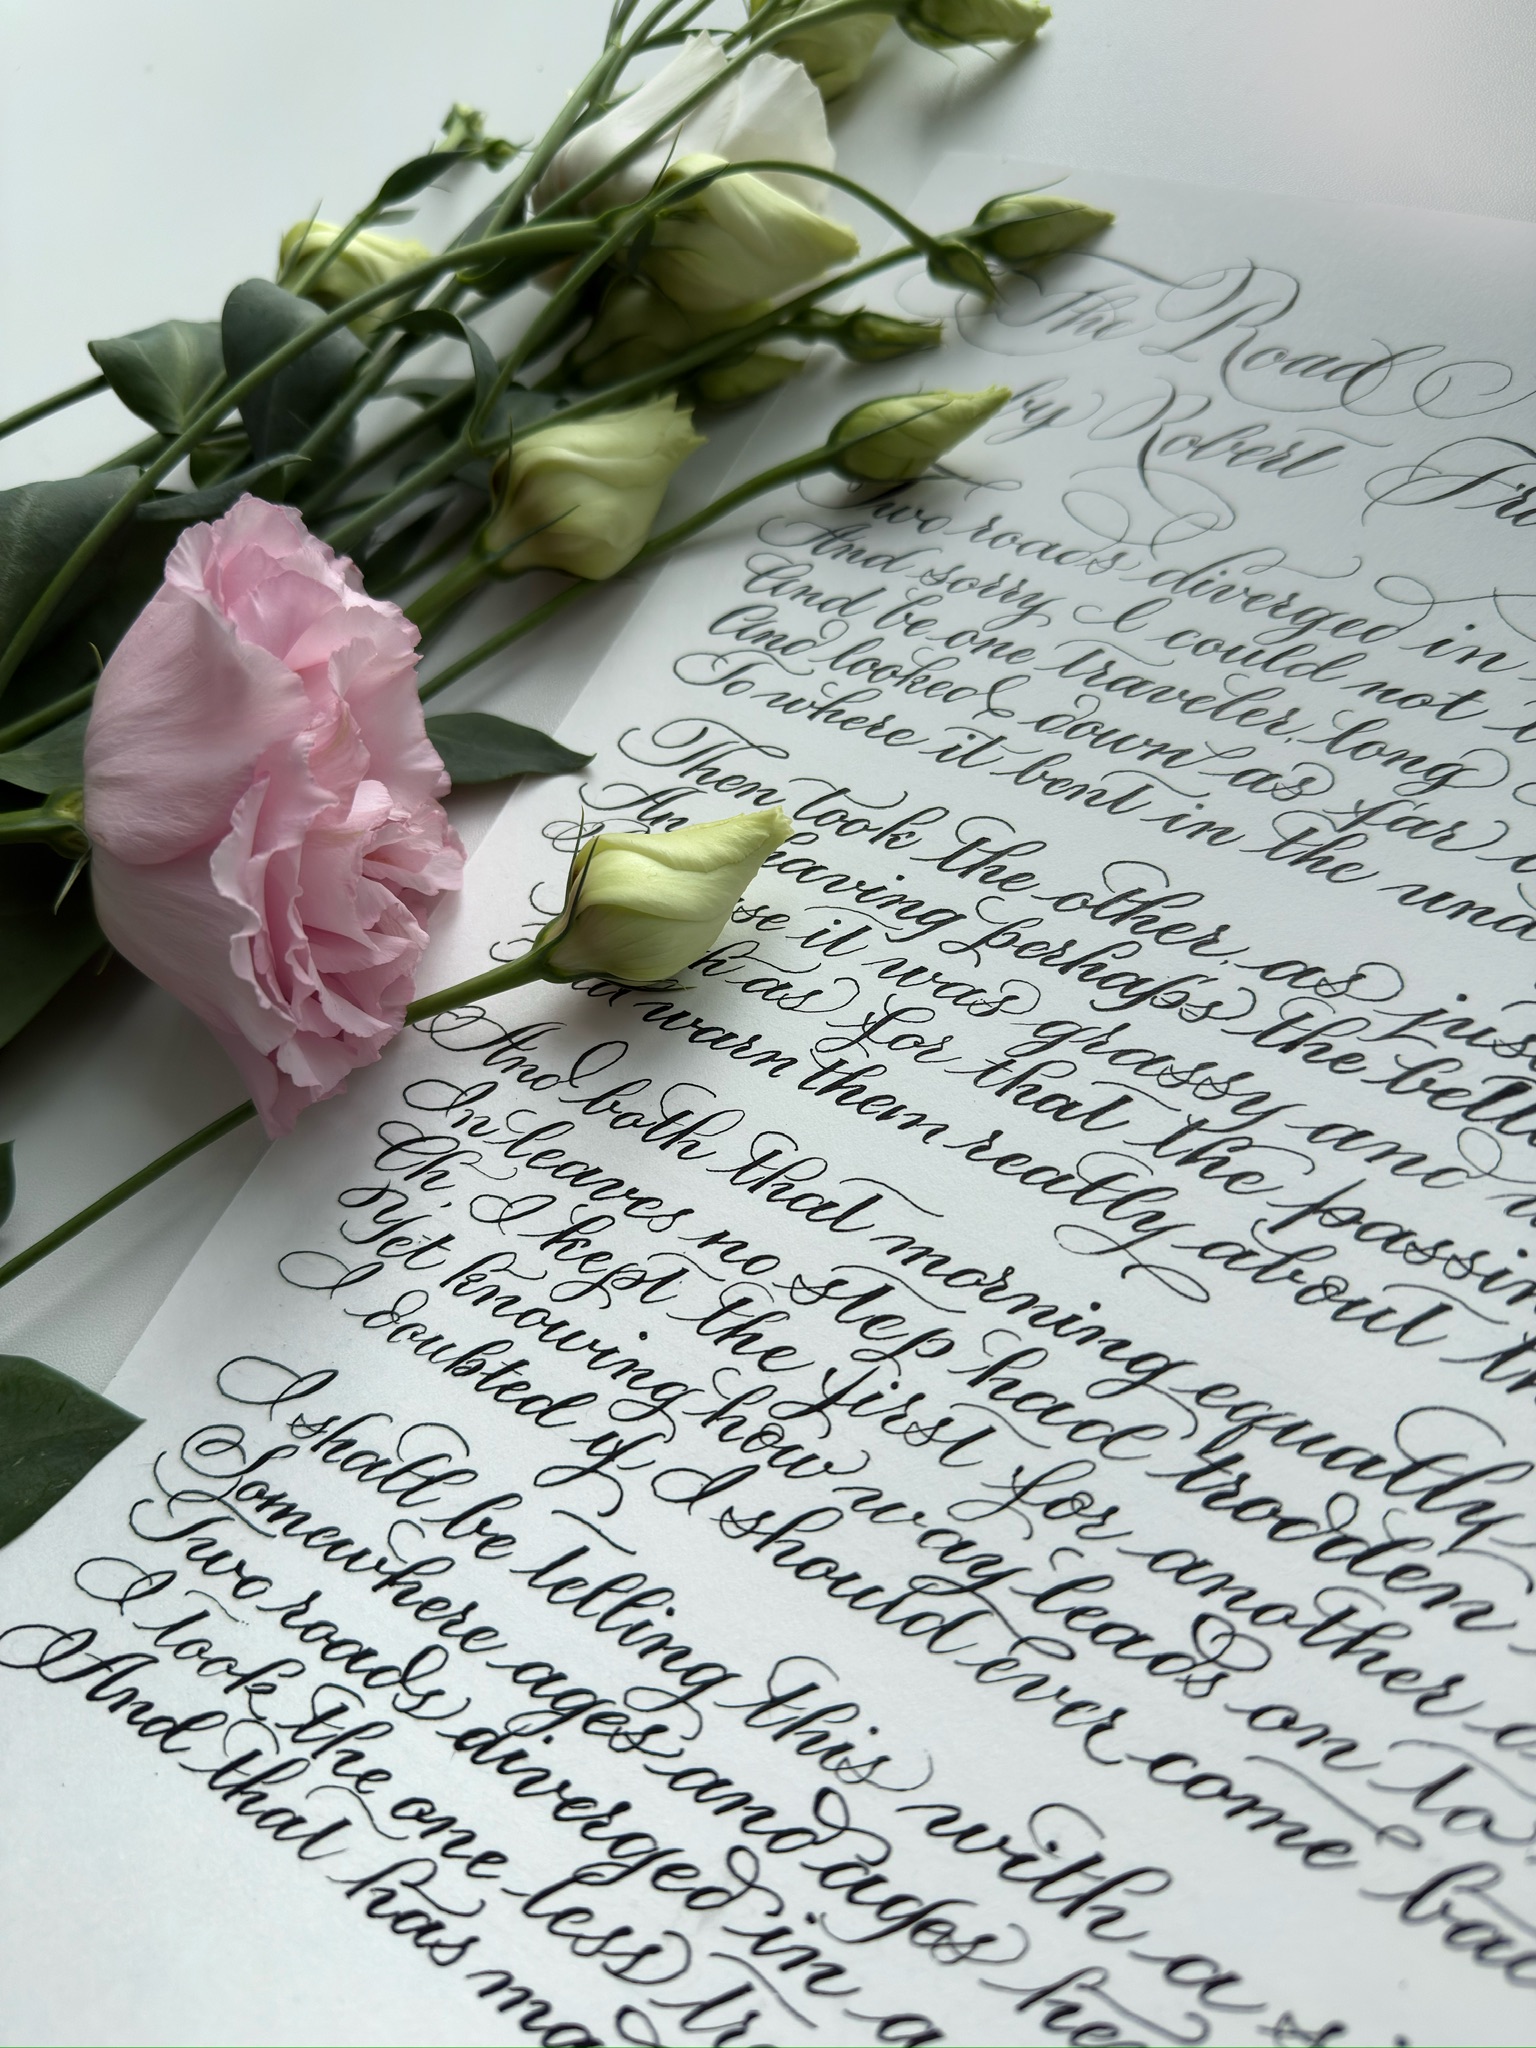 The Road
by Robert
Two roads diverged in
And sorry I could not
And be one traveler, long
And looked down as far
To where it bent in the
Then took the other, as
leaving perhaps the
it was grassy and
as for that the
warn them really about
And both that morning equally
In leaves no step had trodden
Oh, I kept the first for another
Yet knowing how way leads on to
I doubted if I should ever come
I shall be telling this with a
Somewhere ages and ages
Two roads diverged in a
I took the one less
And that has